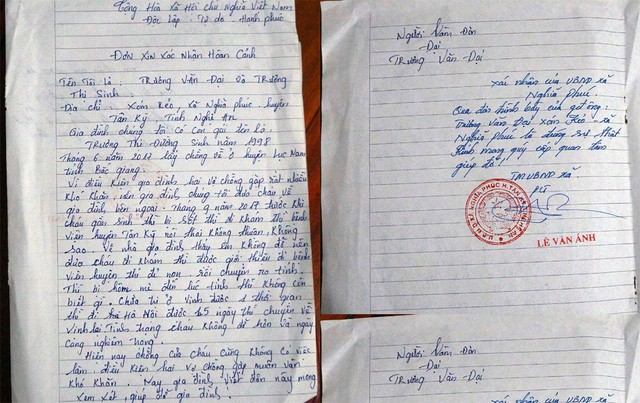 Cộng Hòa Xã Hội Chủ Nghĩa Việt Nam
Độc lập : Tự do - Hạnh phúc
Đơn Xin Xác Nhận Hoàn Cảnh
Tên Tôi là : Trương Văn Đại Và Trương
Thị Sinh.
Địa chỉ . Xóm Rẻo, Xã Nghĩa phúc, huyện
Tân Kỳ, Tỉnh Nghệ An
Gia đình chúng tôi có Con gái tên là,
Trương Thị Dương Sinh năm 1998
Tháng 6 năm 2017 lấy chồng về ở huyện Lục Nam
tỉnh Bắc giang.
Vì điều Kiện gia đình hai Vợ chồng gặp rất nhiều
Khó Khăn, nên gia đình chúng tôi đưa cháu về
gia đình bên ngoại. Tháng 9 năm 2017 trước khi
cháu gần sinh thì bị Sốt thì đi Khám thì bệnh
Viện huyện Tân Kỳ nói thai Không thuận, Không
Sao. Về nhà gia đình thấy em Không đỡ nên
đưa cháu đi Khám thì được giới thiệu đi bệnh
Viện huyện thì đẻ non rồi chuyển ra tỉnh.
Thì bị hôn mê đến lúc tỉnh thì Không còn
biết gì. Chữa trị ở Vinh được 1 thời gian
thì đi Hà Nội được 45 ngày thì chuyển về
Vinh lại Tình trạng cháu Không đỡ hơn Và ngày
Càng nghiêm trọng.
Hiện nay chồng của cháu cũng Không có việc
làm, điều Kiện hai Vợ chồng gặp muôn Vàn
Khó Khăn. Nay gia đình Viết đơn này mong
Xem Xét, giúp đỡ gia đình!
Người Làm Đơn
Đại
Trương Văn Đại
Xác nhận của UBND xã
Nghĩa Phúc
Qua đơn trình bày của gđ ông:
Trương Văn Đại xóm Rẻo xã
Nghĩa Phúc là đúng sự thật
Kính mong quý cấp quan tâm
giúp đỡ!!
TM. UBND xã
LÊ VĂN ÁNH
Người Làm Đơn
Đại
Trương Văn Đại